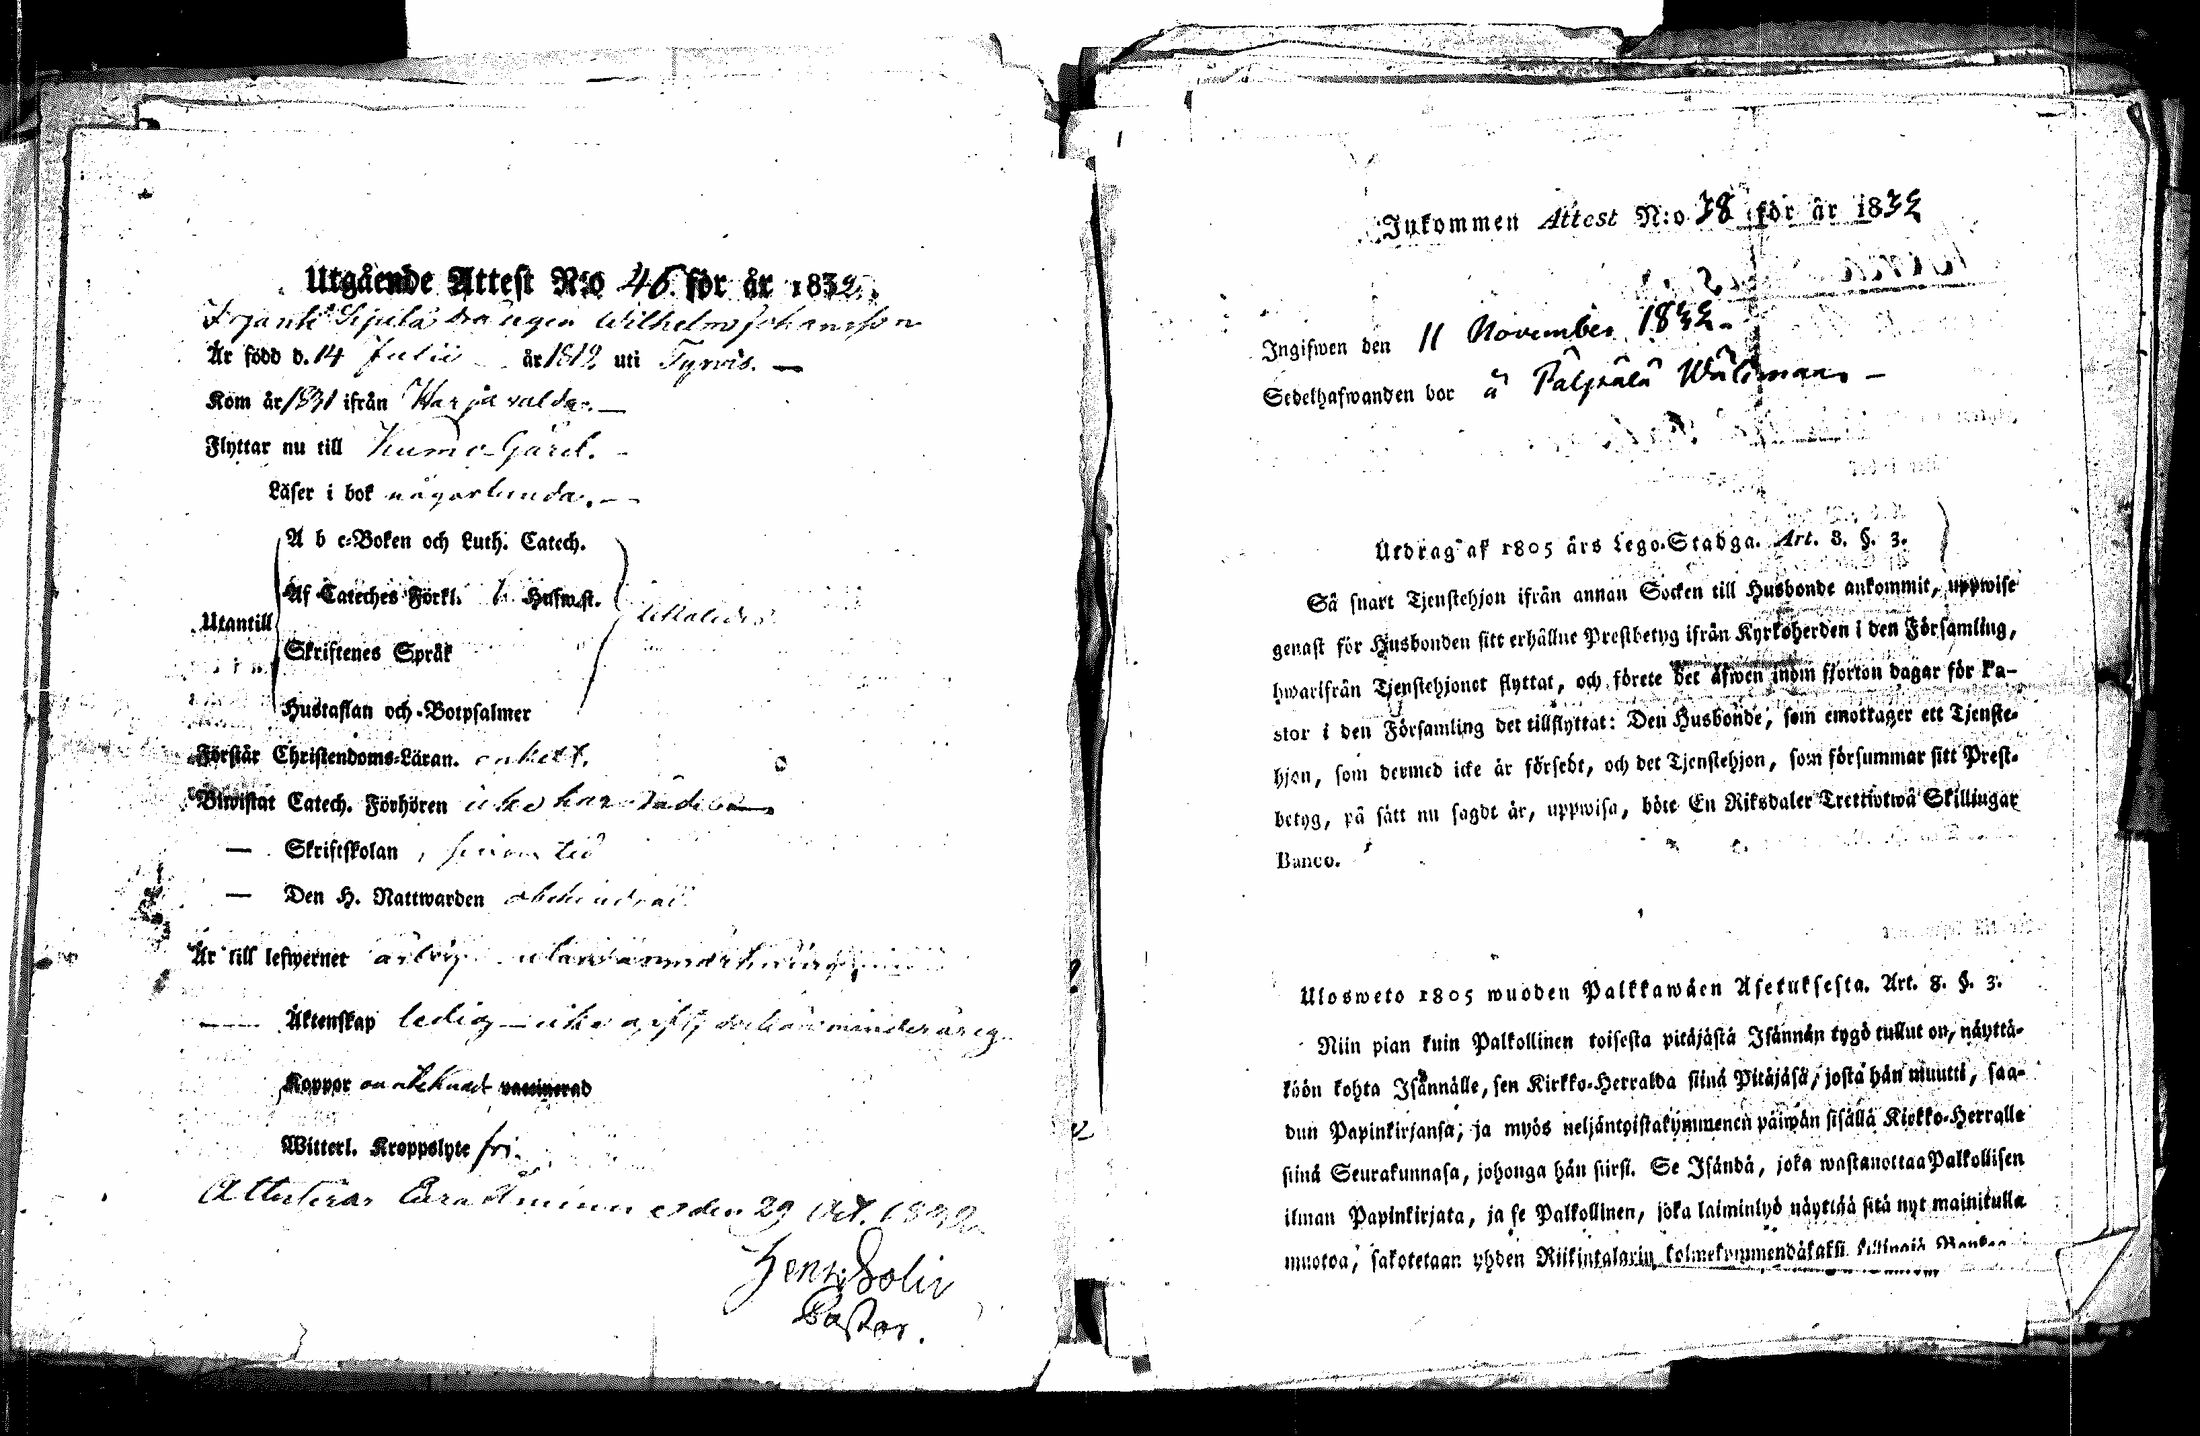 Utgående Attest N:o 46 för år 1832.
Sipilä drängen Wilhelm Johansson
Är född d. 14 Julii år 1812 uti Tyrvis.
Kom år 1831 ifrån Harjavalda.
Flyttar nu till Kumo Gård.
Läser i bok någorlunda.
A b c-Boken och Luth. Catech.
Af Cateches Förkl. Husw.st.
Utantill
Skriftenes Språk
Hustaflan och Botpsalmer
Förstår Christendoms-Läran. enkelt.
Biwistat Catech. Förhören icke har
— Skriftskolan, sin tid
— Den H. Nattwarden obehindrad
Är till lefwernet ärlig utan anmärkning
— Äktenskap ledig — icke minderårig.
Koppor vaccinerad
Witterl. Kroppslyte fri.
Attesteras Eura den 29 Oct. 1832.
Pastor.
Inkommen Attest N:o 38 för år 1832
Ingifwen den 11 November 1832.
Sedelhafwanden bor å
Utdrag af 1805 års Lego-Stadga. Art. 8. §. 3.
Så snart Tjenstehjon ifrån annan Socken till Husbonde ankommit, uppwise
genast för Husbonden sitt erhållne Prestbetyg ifrån Kyrkoherden i den Församling,
hwarifrån Tjenstehjonet flyttat, och förete det äfwen inom fjorton dagar för Pa-
stor i den Församling det tillflyttat: Den Husbonde, som emottager ett Tjenste-
hjon, som dermed icke är försedt, och det Tjenstehjon, som försummar sitt Prest-
betyg, på sätt nu sagdt är, uppwisa, böte En Riksdaler Trettiotwå Skillingar
Banco.
Ulosweto 1805 wuoden Palkkawäen Asetuksesta. Art. 8. §. 3.
Niin pian kuin Palkollinen toisesta pitäjästä Isännän tygö tullut on, näyttä-
köön kohta Isännälle, sen Kirkko-Herralda siinä Pitäjäsä, josta hän muutti, saa-
dun Papinkirjansa; ja myös neljäntoistakymmenen päiwän sisällä Kirkko-Herralle
siinä Seurakunnasa, johonga hän siirst. Se Isändä, joka wastanottaa Palkollisen
ilman Papinkirjata, ja se Palkollinen, joka laiminlyö näyttää sitä nyt mainitulla
muotoa, sakotetaan yhden Riikintalarin kolmekymmendäkaksi killingiä Bankoa